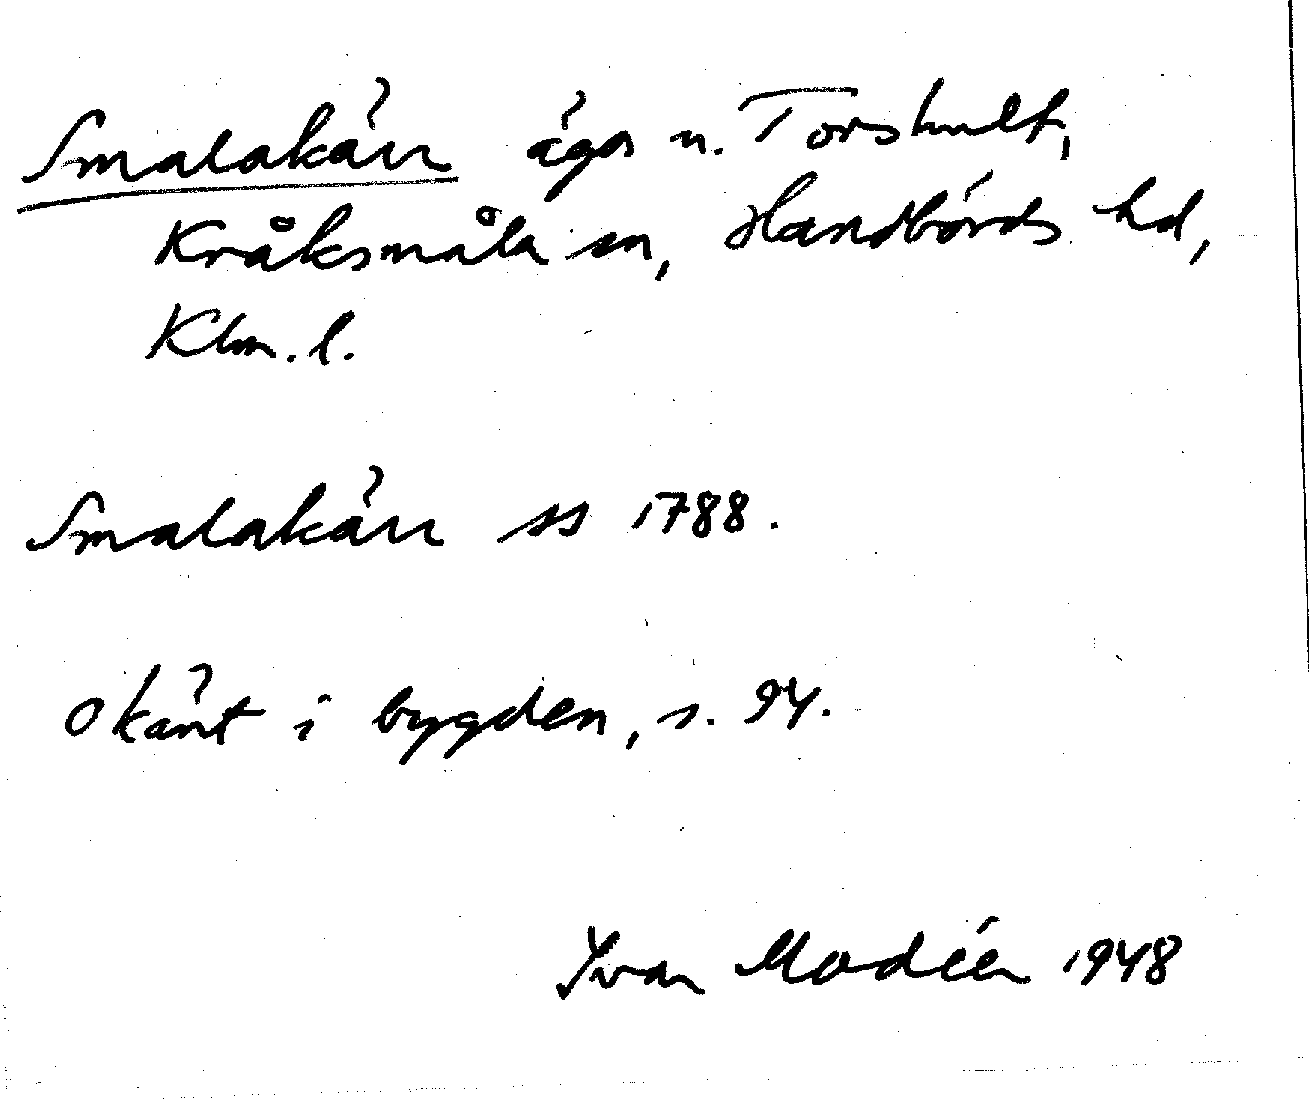 Smalakärr äga u. Torshult,
Kråksmåla sn, Handbörds hd,
Klm. l.
Smalakärr ss 1788.
Okänt i bygden, s. 94.
Ivar Modéer 1948